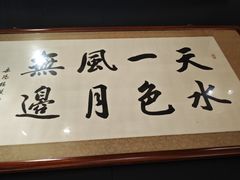 天水
一色
風月
無邊